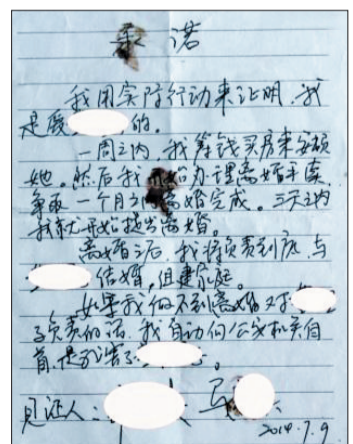 承诺
我用实际行动来证明，我
是爱 的。
一周之内，我筹钱买房来安顿
她。然后我开始办理离婚手续，
争取一个月之内离婚完成。三天之内
我就开始提出离婚。
离婚之后，我将负责到底，与
结婚，组建家庭。
如果我做不到离婚对
予负责的话，我自动向公安机关自
首，是我害了 。
见证人：
2014.7.9